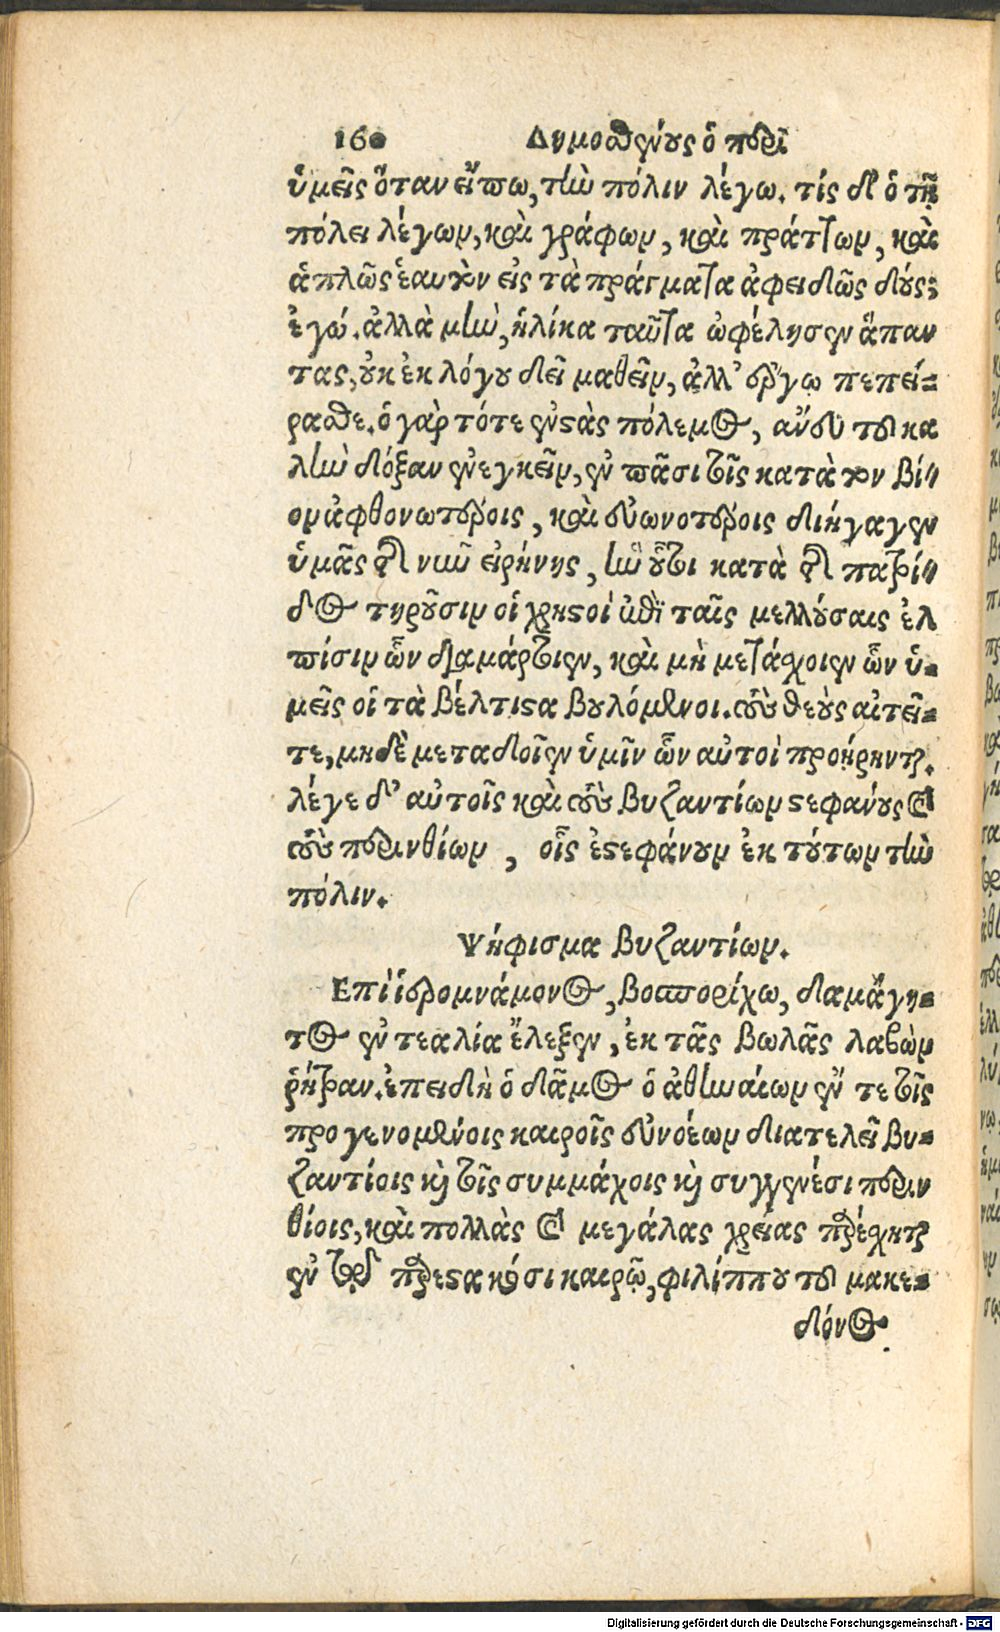 160 Δημοσθένους ὁ περὶ
ὑμεῖς ὅταν εἴπω, τὴν πόλιν λέγω. τίς δ' ὁ τῇ
πόλει λέγων, καὶ γράφων, καὶ πράττων, καὶ
ἁπλῶς ἑαυτὸν εἰς τὰ πράγματα ἀφειδῶς δούς;
ἐγώ. ἀλλὰ μὴν, ἡλίκα ταῦτα ὠφέλησεν ἅπαν
τας, οὐκ ἐκ λόγου δεῖ μαθεῖν, ἀλλ' ἔργῳ πεπεί-
ρασθε. ὁ γὰρ τότε ἐνστὰς πόλεμος, ἄνευ τοῦ κα
λὴν δόξαν ἐνεγκεῖν, ἐν πᾶσι τοῖς κατὰ τὸν βί-
ον ἀφθονωτέροις, καὶ εὐωνοτέροις διήγαγεν
ὑμᾶς τῆς νῦν εἰρήνης, ἣν οὗτοι κατὰ τῆς πατρί-
δος τηροῦσιν οἱ χρηστοὶ ἐπὶ ταῖς μελλούσαις ἐλ
πίσιν ὧν διαμάρτοιεν, καὶ μὴ μετάσχοιεν ὧν ὑ-
μεῖς οἱ τὰ βέλτιστα βουλόμενοι. τοὺς θεοὺς αἰτεῖ-
τε, μηδὲ μεταδοῖεν ὑμῖν ὧν αὐτοὶ προῄρηνται.
λέγε δ' αὐτοῖς καὶ τοὺς βυζαντίων στεφάνους καὶ
τοὺς περινθίων, οἷς ἐστεφάνουν ἐκ τούτων τὴν
πόλιν.
Ψήφισμα βυζαντίων.
Επὶ ἱερομνάμονος, βοσπορίχω, δαμάγη-
τος ἐν τεαλία ἔλεξεν, ἐκ τᾶς βωλᾶς λαβὼν
ῥήτραν. ἐπειδὴ ὁ δᾶμος ὁ ἀθηναίων ἔν τε τοῖς
προγενομένοις καιροῖς εὐνοέων διατελεῖ βυ-
ζαντίοις καὶ τοῖς συμμάχοις καὶ συγγενέσι περιν
θίοις, καὶ πολλὰς καὶ μεγάλας χρείας παρέσχηται
ἐν τῷ παρεστακότι καιρῷ, φιλίππου τοῦ μακε-
δόνος
Digitalisierung gefördert durch die Deutsche Forschungsgemeinschaft - DFG